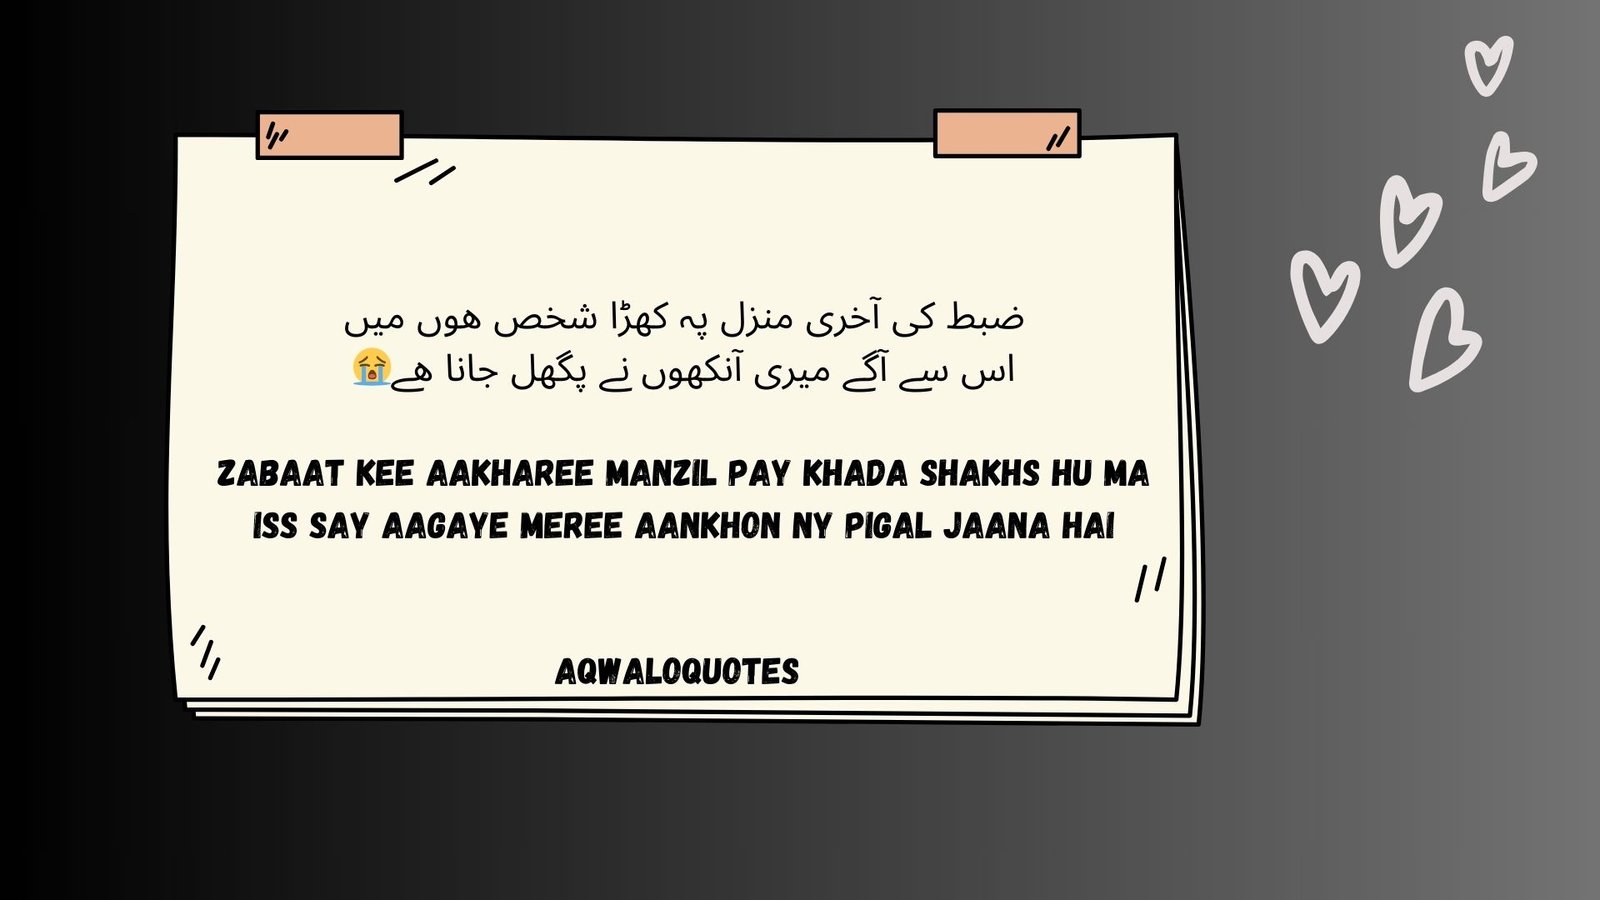 ضبط کی آخری منزل پہ کھڑا شخص ھوں میں
اس سے آگے میری آنکھوں نے پگھل جانا ھے😭
ZABAAT KEE AAKHAREE MANZIL PAY KHADA SHAKHS HU MA
ISS SAY AAGAYE MEREE AANKHON NY PIGAL JAANA HAI
AQWALOQUOTES